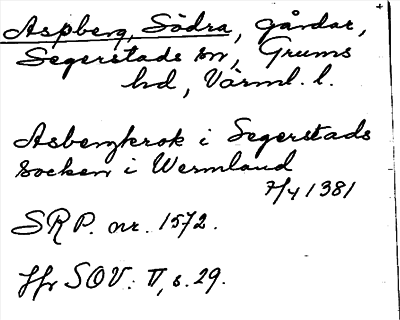 Aspberg, Södra, gårdar,
Segerstads sn, Grums
hd, Värml. l.
Asbergkrok i Segerstads
socken i Wermland
7/4 1381
SRP. nr. 1572.
Jfr SOV: II, s. 29.